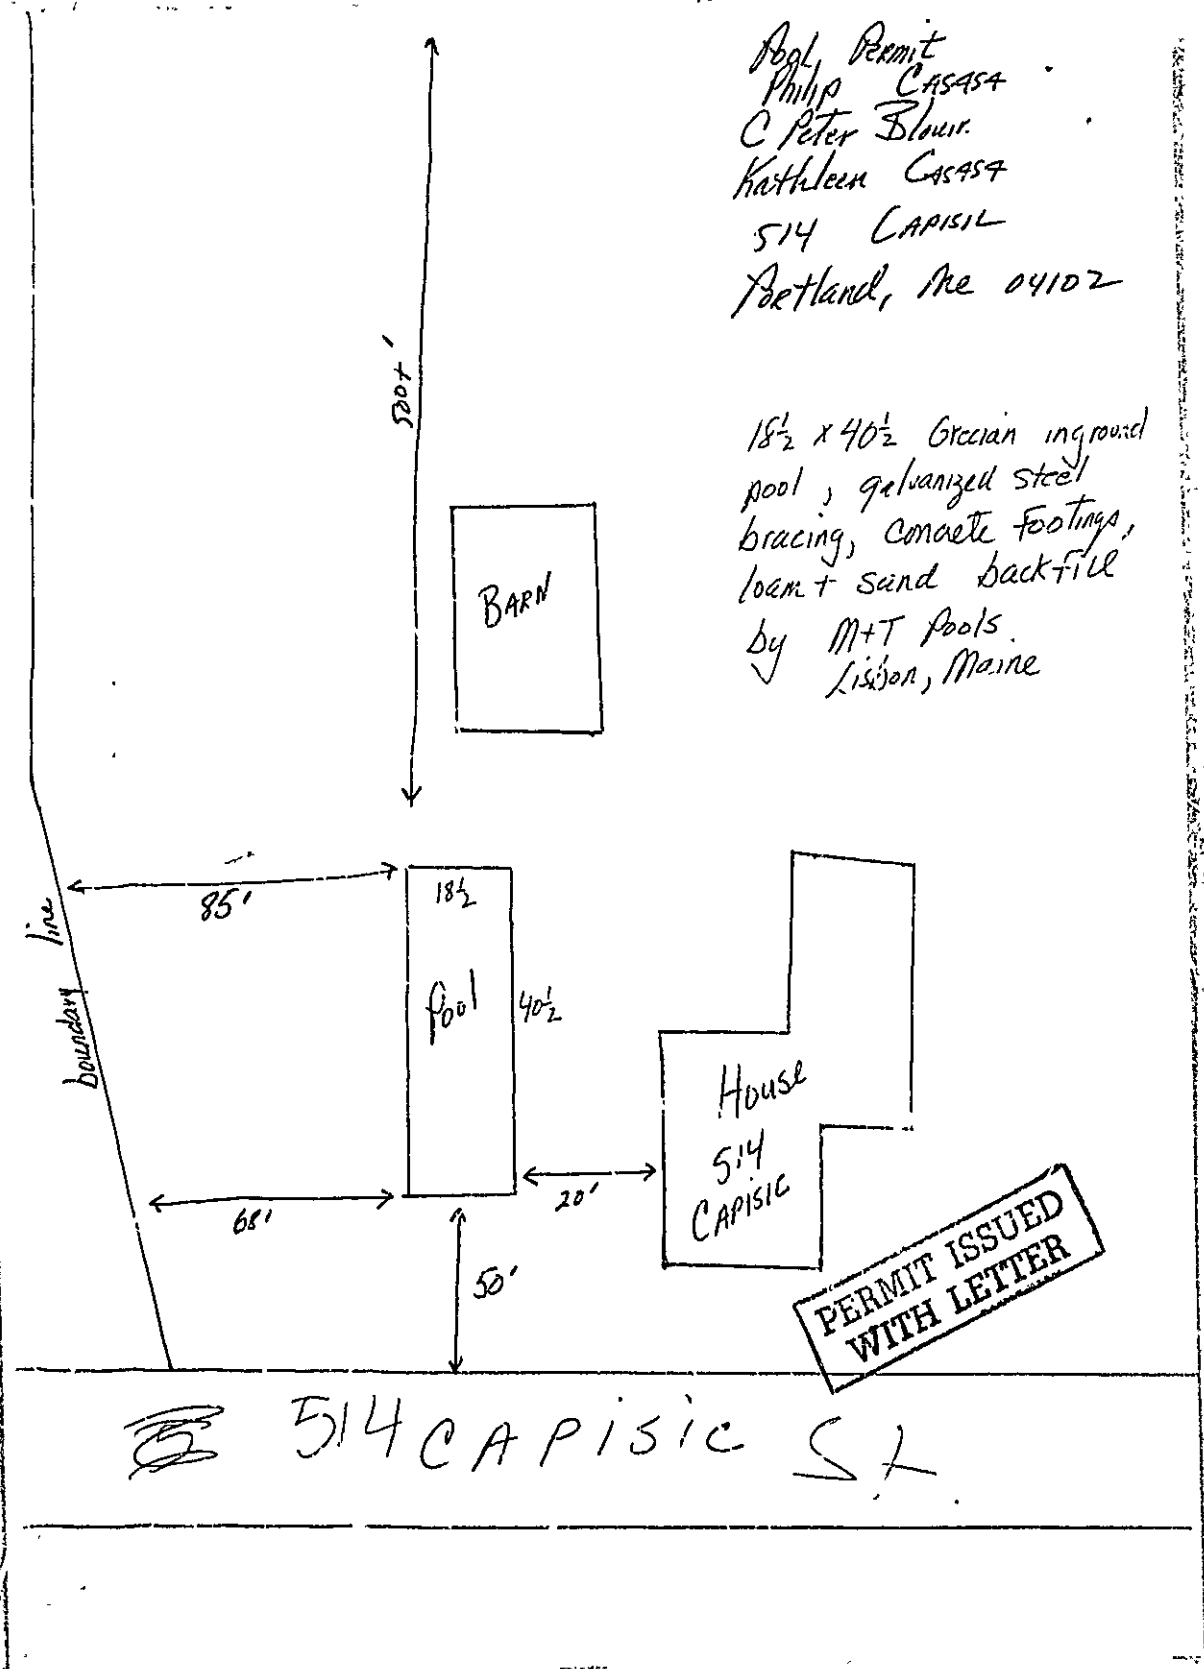 Pool Permit
Philip Casasa
C Peter Blouin
Kathleen Casasa
514 CAPISIC
Portland, Me 04102
500+'
18½ x 40½ Grecian inground
pool, galvanized steel
bracing, concrete footings,
loam + sand backfill
by M+T Pools
Lisbon, Maine
BARN
85'
18½
boundary line
Pool
40½
House
514
CAPISIC
68'
20'
50'
PERMIT ISSUED
WITH LETTER
514 CAPISIC St.